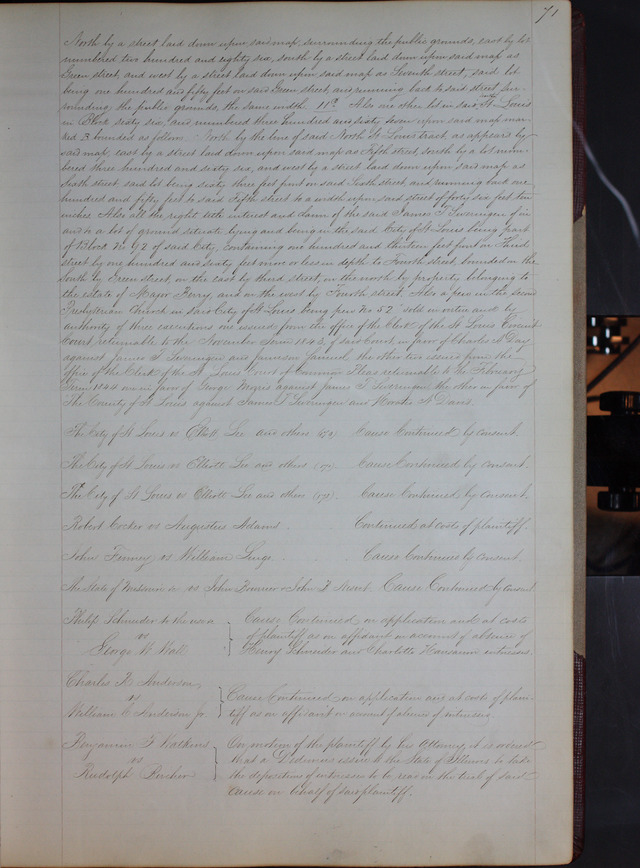 71
North by a street laid down upon said map, surrounding the public grounds, east by lot
numbered two hundred and eighty six, south by a street laid down upon said map as
Green street, and west by a street laid down upon said map as Seventh street, said lot
being one hundred and fifty feet on said Green street, and running back to said street sur-
rounding the public grounds, the same width. Also one other lot in said St. Louis
in Block sixty six, and numbered three hundred and sixty upon said map mar-
ked 3 bounded as follows North by the line of said North St Louis tract as appears by
said map, east by a street laid down upon said map as Fifth street, south by a lot num-
bered three hundred and sixty six, and west by a street laid down upon said map as
Sixth street said lot being sixty three feet front on said Sixth street and running back one
hundred and fifty feet to said Fifth street to a width upon said street of forty six feet ten
inches. Also all the right title interest and claim of the said James T Sweringen of in
and to a lot of ground situate lying and being in the said City of St Louis being part
of Block No 92 of said City, Containing one hundred and thirteen feet front on Third
street by one hundred and sixty feet more or less in depth to Fourth street, bounded on the
South by Green street, on the east by third street, on the north by property belonging to
the estate of Major Berry, and on the west by Fourth street. Also a pew in the Second
Presbyterian Church in said City of St Louis being pew No 52 sold in virtue and by
authority of three executions one issued from the office of the Clerk of the St Louis Circuit
Court returnable to the November Term 1843, of said Court, in favor of Charles A Day
against James T Sweringen and Jameson Samuel, the other two issued from the
office of the Clerk of the St Louis Court of Common Pleas returnable to the February
Term 1844 one in favor of George Megris against James T Sweringen the other in favor of
The County of St Louis against James T Sweringen and Horatio N Davis.
The City of St Louis vs Elliott Lee and others Cause Continued by consent.
The City of St Louis vs Elliott Lee and others (170) Cause Continued by consent.
The City of St Louis vs Elliott Lee and others (171) Cause Continued by consent.
Robert Cocker vs Augustus Adams Continued at costs of plaintiff.
John Finney vs William Lings Cause Continued by consent.
The State of Missouri vs John F Cause Continued by consent
Philip Schneider to the use Cause Continued on application and at costs
vs of plaintiff as on affidavit on account of absence of
George W Wall Henry Schneider and Charlotte Hausmann witnesses.
Charles N Anderson,
vs Cause Continued on application and at costs of plain-
William C Anderson Jr. tiff as on affidavit on account of absence of witnesses
Benjamin F Watkins On motion of the plaintiff by his Attorney it is ordered
vs that a Dedimus issue to the State of Illinois to take
Rudolph Bircher the deposition of witnesses to be read on the trial of said
cause on behalf of said plaintiff.